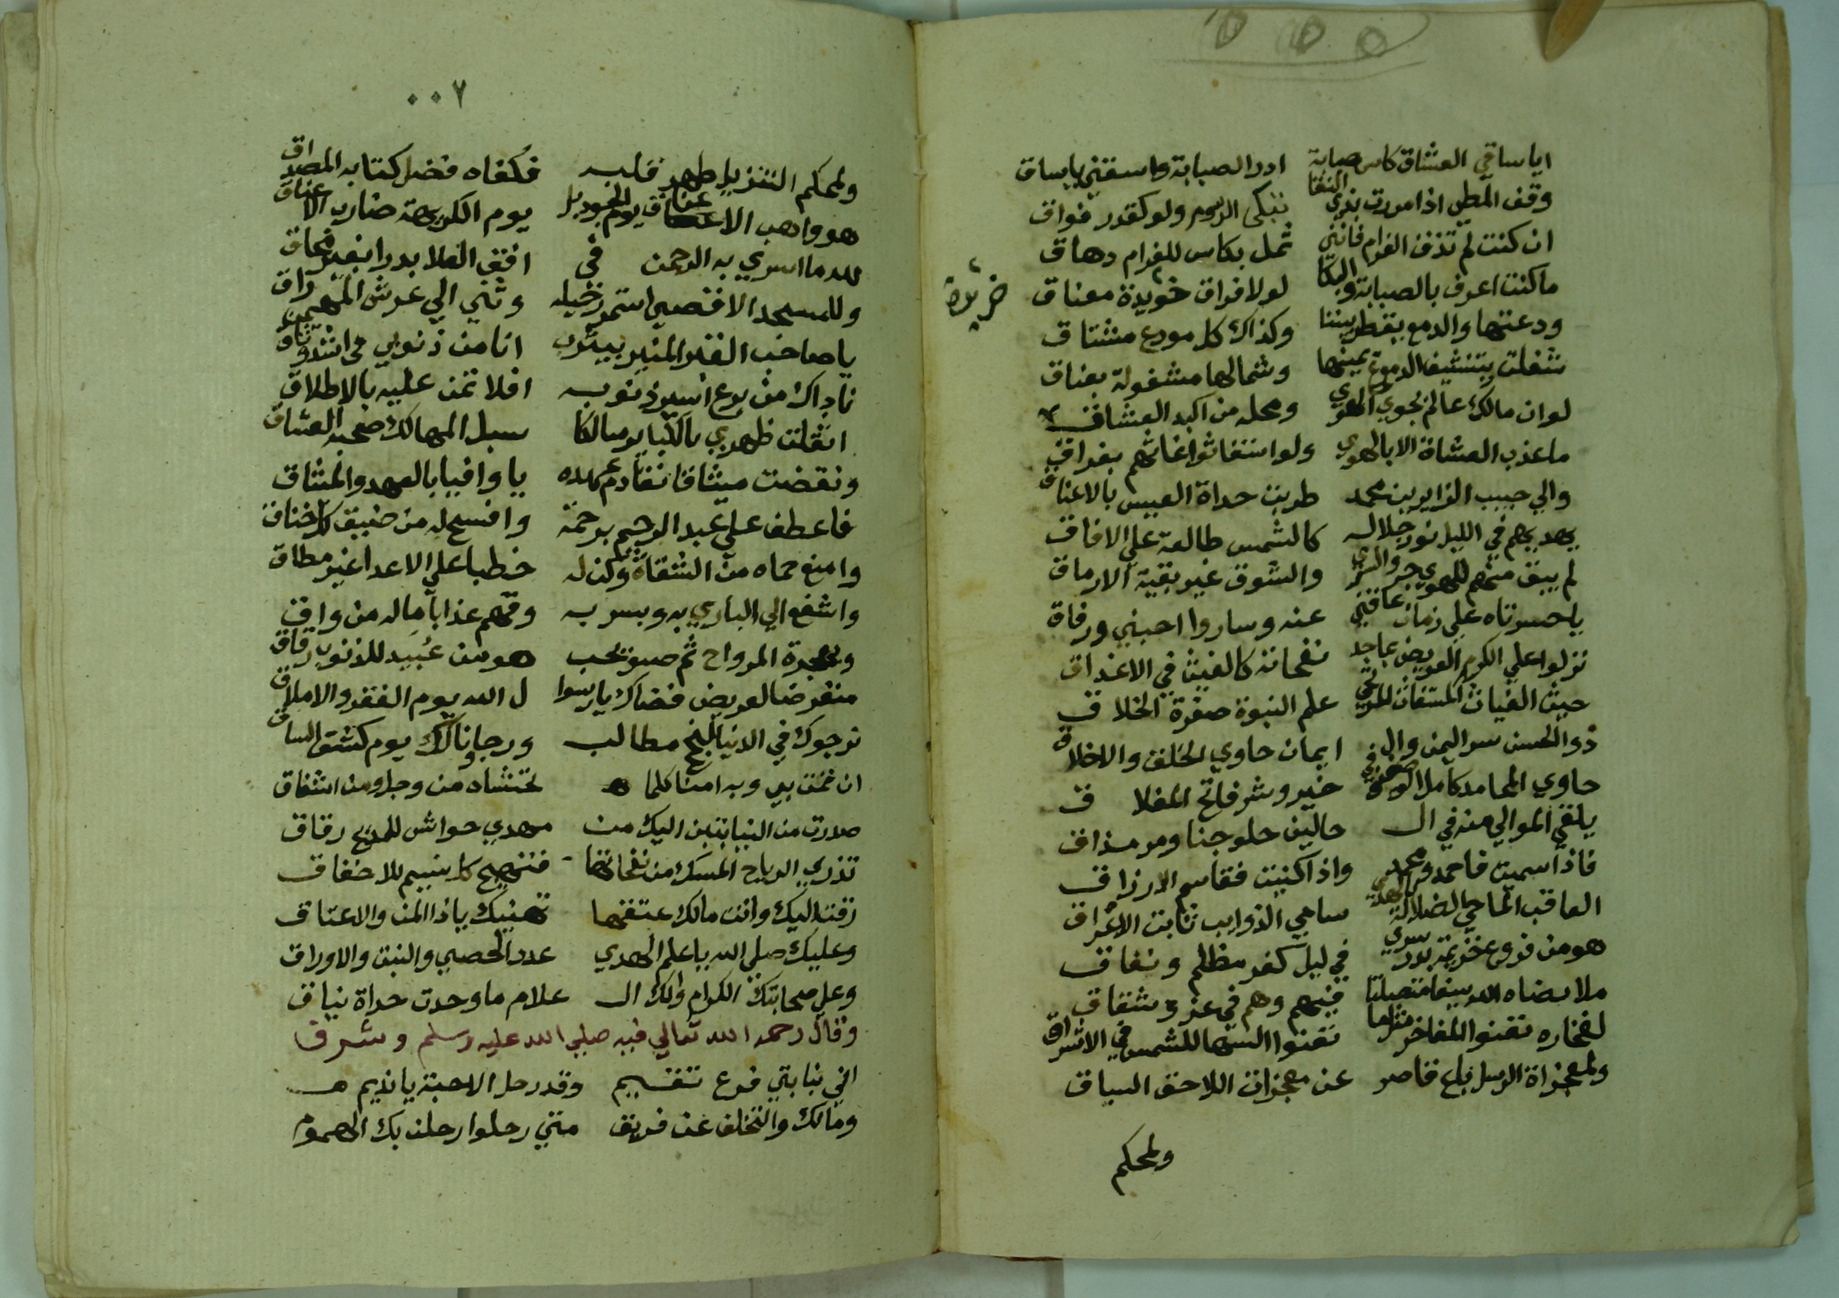 اياساقي العشاق كاس صبابة ادر الصبابة واسقني ياساق
وقف المطي اذا مررت بذي النقا نبكي الرسوم ولو كقدر فواق
ان كنت لم تذق الغرام فانني ثمل بكاس للغرام دهاق
ما كنت اعرف بالصبابة والبكا لولا فراق خويدة معناق
خريدة
ودعتها والدمع يقطر بيننا وكذاك كل مودع مشتاق
شغلت بتنشيف الدموع يمينها وشمالها مشغولة بعناق
لو ان مالك عالم بجوي الهوي ومحله من اكبد العشاق
ما عذب العشاق الا بالهوي ولو استغاثوا اغاثهم بفراق
والي حبيب الزايرين محمد طربت حداة العيس بالاعناق
يهديهم في الليل نور جلاله كالشمس طالعة علي الافاق
لم يبق منهم للهوي حر والسري والشوق غير بقية الارماق
ياحسرتاه علي زمان عاقني عنه وساروا احبتي ورفاق
نزلوا علي الكرم العريض بماجد نفحاته كالغيث في الاغداق
حيث الغياث المستغاث المرتجي علم النبوة صفوة الخلاق
ذو الحسن سر اليمن وال ايمان حاوي الخلق والاخلاق
حاوي المحامد كاملا خير وشر فاتح المغلاق
يلقي الموالي منه في ال حالين حلو جنا ومر مذاق
فاذا سميت فاحمد ومحمد واذا كنيت فقاسم الارزاق
العاقب الماحي الضلالة سامي الذوايب ثابت الاعراق
هو من فروع خزيمة بدر سري في ليل كفر مظلم ونفاق
ملا بضاه الله سيفا منصلتا فيهم وهم في عز وشقاق
لفخاره تعنوا المفاخر مثلما تعنوا السها للشمس في الاشراق
ولمعجزاة الرسل بلع قاصر عن معجزات اللاحق السباق
ولمحكم
٠٠٧
ولمحكم التنزيل طهر قلبه فكفاه فضل كتابه المصداق
هو واهب الاعناق يوم الجود بل يوم الكريهة ضارب الاعناق
لله ما اسري به الرحمن في افق العلا بدرا بغير محاق
وللمسجد الاقصي استمر رحيله وثني الي عرش المهيمن راق
يا صاحب القبر المنير بيثرب انا من ذنوبي في اشد وثاق
ناداك من برع اسير ذنوبه افلا تمن عليه بالاطلاق
اثقلت ظهري بالكبابر سالكا سبل المهالك صحبة العشاق
ونقضت ميثاقا تقادم عهده يا وافيا بالعهد والميثاق
فاعطف علي عبد الرحيم برحمة وافسح له من ضيق كل خناق
وامنع حماه من الشقاة وكن له خطبا علي الاعدا غير مطاق
واشفع الي الباري به وبسربه وقهم عذابا ماله من واق
هو من عبيد للذنوب رقاق
منقرضا لعريض فضلك يارسوا ل الله يوم الفقر والاملاق
نرجوك في الدنيا لنجح مطالب ورجاؤنا لك يوم كشف الساق
ان خفت بي وبه امنا كلما نخشاه من وجل ومن اشفاق
صدرت من النيابتين اليك من مهدي حواشي للمديح رقاق
تذري الرياح المسك من نفحاتها فتهيج كل نسيم للاخفاق
زفت اليك وانت مالك عتقها تهنيك ياذا المن والاعتاق
وعليك صلي الله ياعلم الهدي عدد الحصي والنبت والاوراق
وعلي صحابتك الكرام والك ال علام ما وحدت حداة نياق
وقال رحمه الله تعالي فيه صلي الله عليه وسلم وشرف
اني نيابتي فرع تقيم وقد رحل الاحبة يا نديم
ومالك والتخلف عن فريق متي رحلوا رحلن بك الهموم